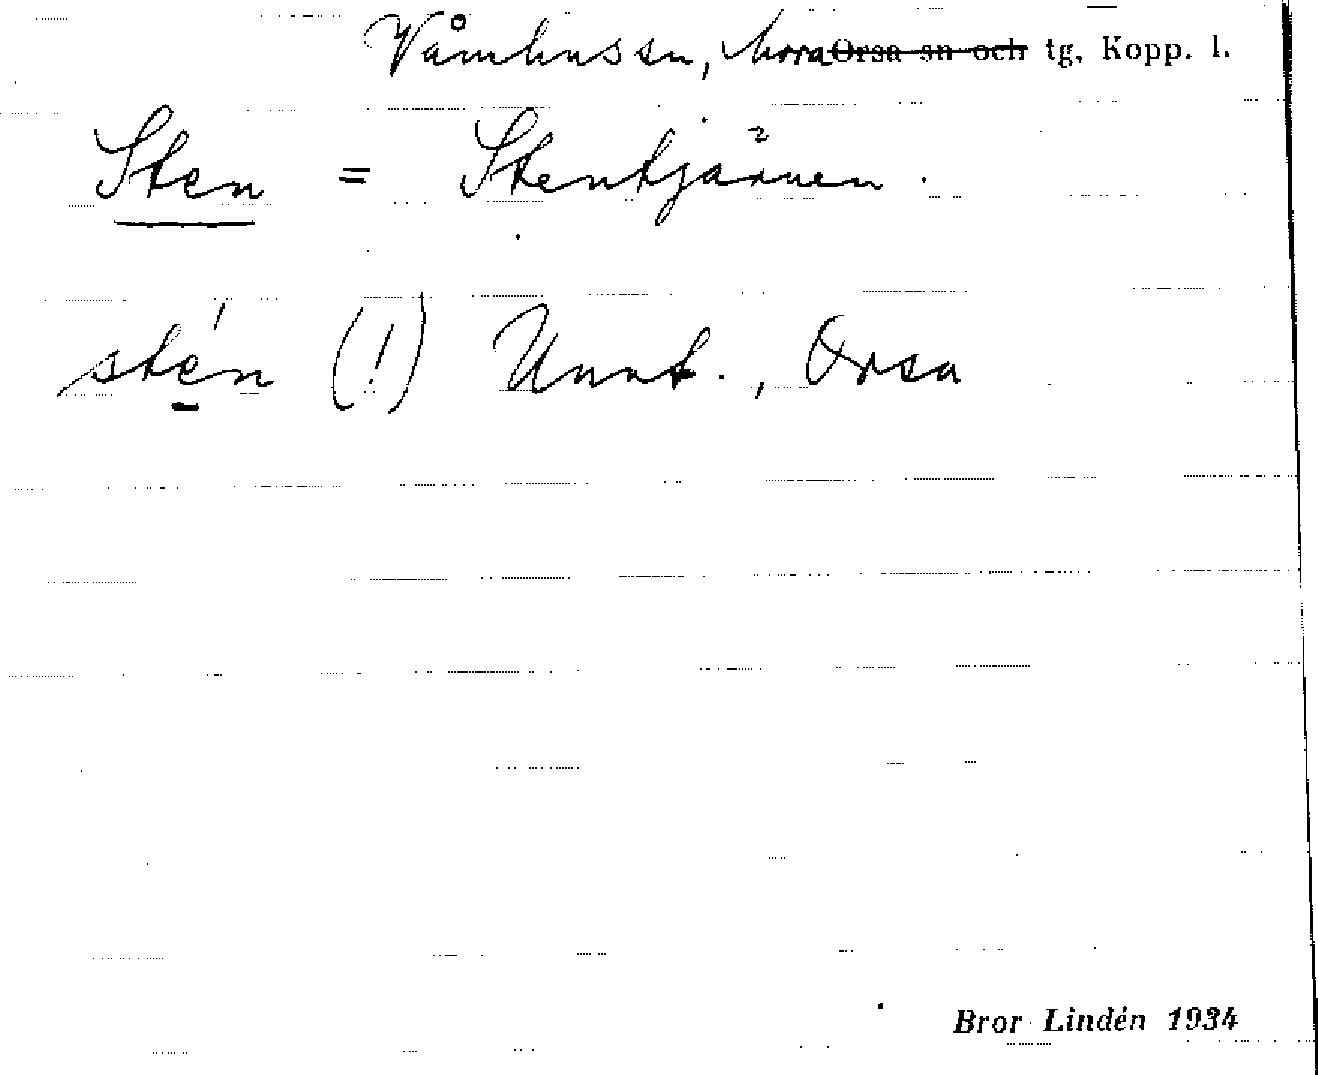 Våmhus sn, Mora Orsa sn och tg, Kopp. l.
Sten = Stentjärnen.
stén (!) Unnt., Orsa
Bror Lindén 1934